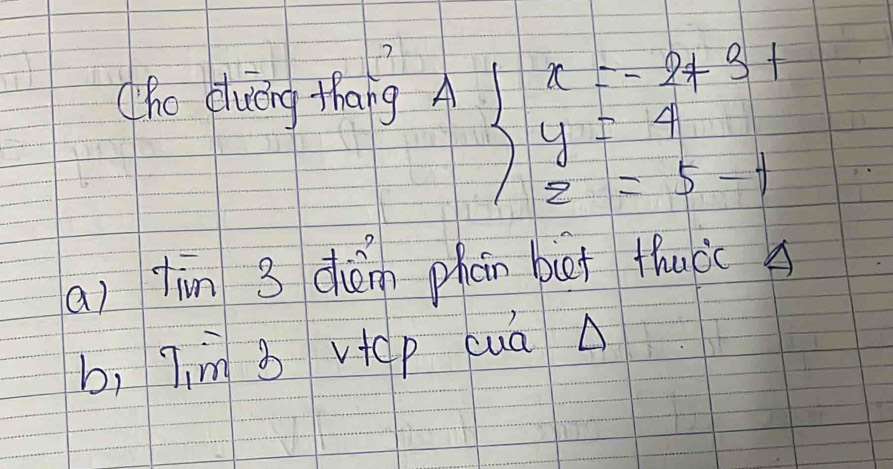 Cho đường thẳng Δ { x = -2+3t
y = 4
z = 5 - t
a) Tìm 3 điểm phân biệt thuộc Δ
b, Tìm 3 vtcp của Δ